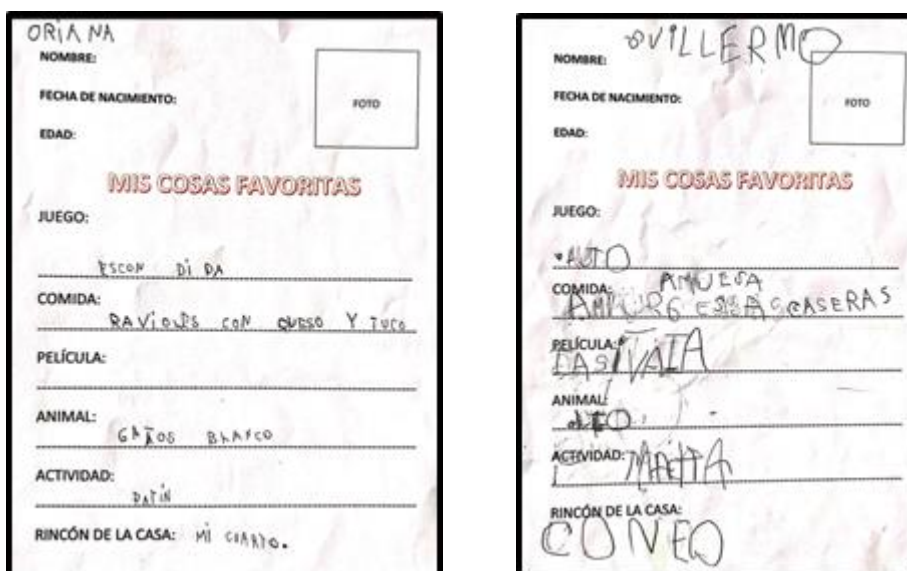 ORIANA
NOMBRE:
FECHA DE NACIMIENTO:
FOTO
EDAD:
MIS COSAS FAVORITAS
JUEGO:
ESCON DI DA
COMIDA:
RAVIOLES CON QUESO Y TUCO
PELÍCULA:
ANIMAL:
GATOS BLANCO
ACTIVIDAD:
PATIN
RINCÓN DE LA CASA: MI CUARTO.
NOMBRE: GVILLERMO
FECHA DE NACIMIENTO:
FOTO
EDAD:
MIS COSAS FAVORITAS
JUEGO:
AUTO
COMIDA:
CASERAS
PELÍCULA:
ANIMAL:
ACTIVIDAD:
RINCÓN DE LA CASA:
CONEO